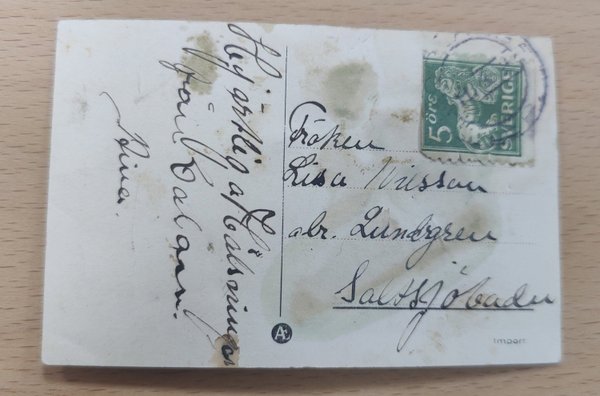 Hjärtliga Hälsningar
från Dalarn.
Nina.
5 ÖRE
SVERIGE
Fröken
Lisa Nilsson
abr. Lundgren
Saltsjöbaden
Æ
Import